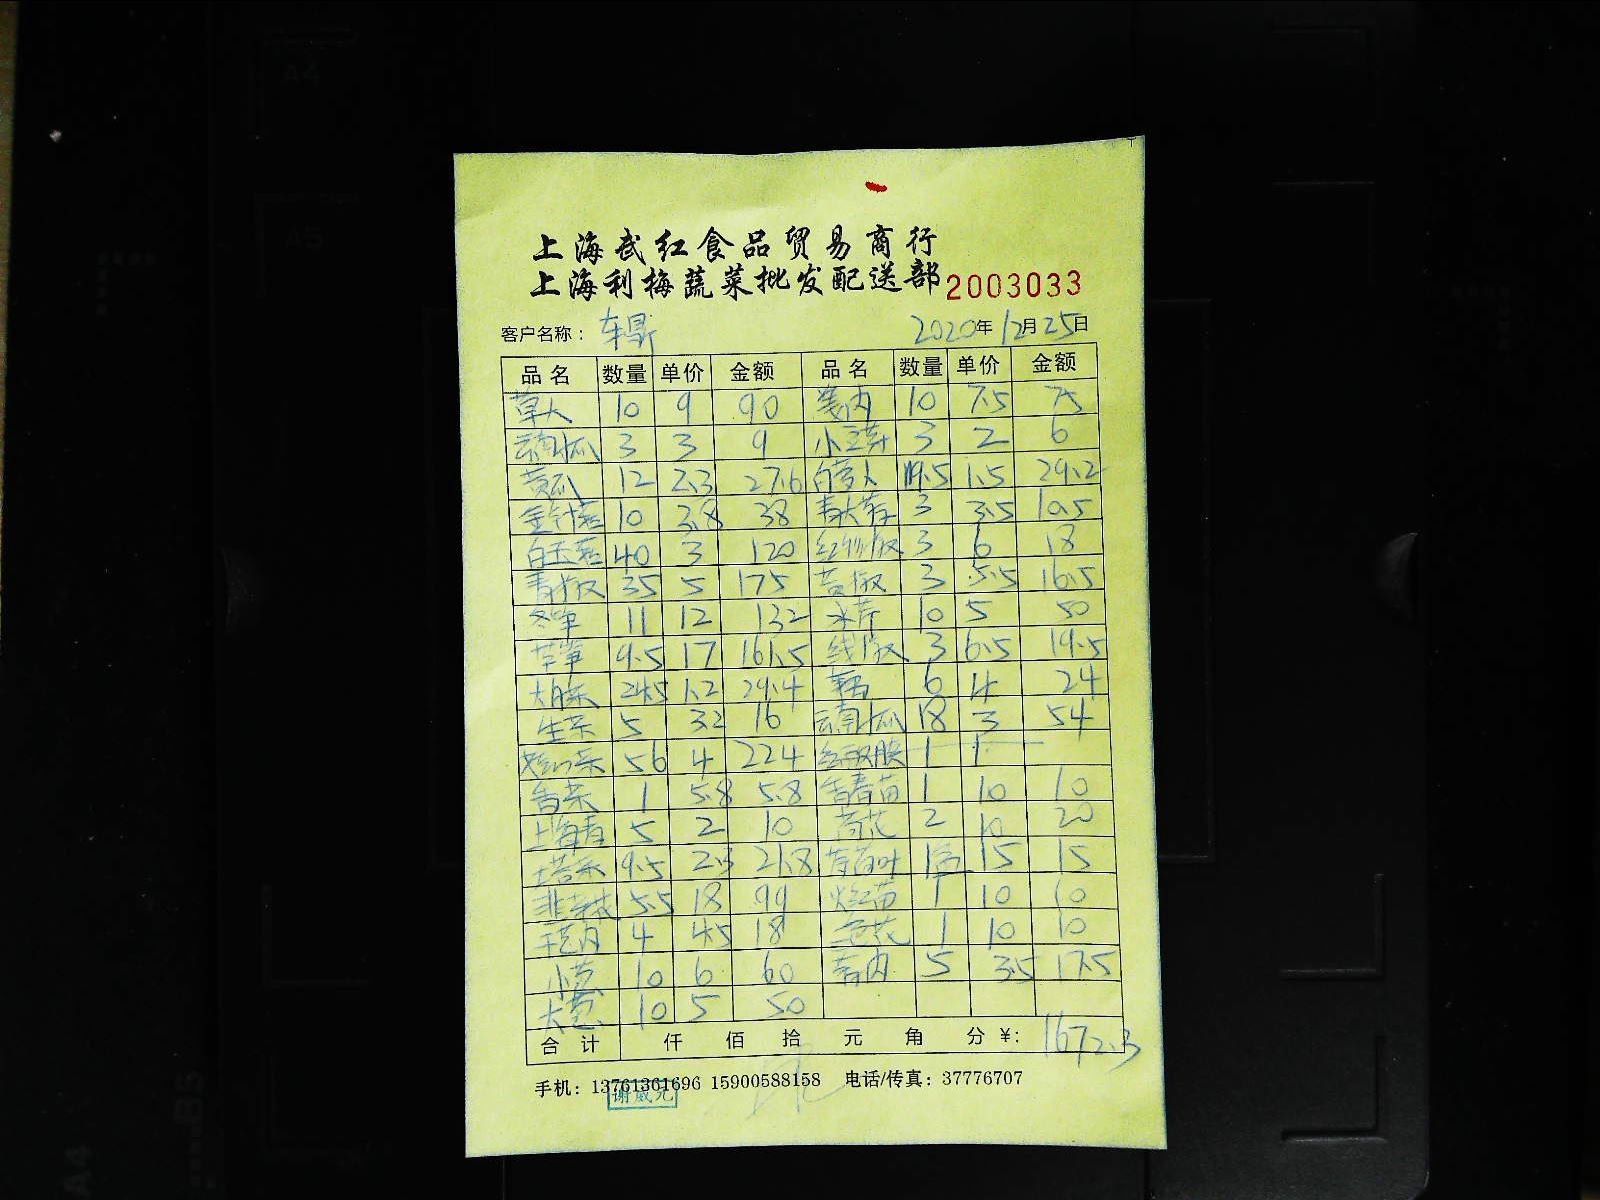 上海武红食品贸易商行
上海利梅蔬菜批发配送部 2003033
客户名称： 2020年12月25日
品名 数量 单价 金额 品名 数量 单价 金额
草大 10 9 90 10 7.5 75
云南小瓜 3 3 9 小豆芽 3 2 6
黄瓜 12 2.3 27.6 白萝卜 19.5 1.5 29.2
金针菇 10 3.8 38 青大蒜 3 3.5 10.5
白玉菇 40 3 120 红粉椒 3 6 18
青椒 35 5 175 黄椒 3 5.5 16.5
冬笋 11 12 132 水芹 10 5 50
芦笋 9.5 17 161.5 线椒 3 6.5 19.5
大白菜 24.5 1.2 29.4 6 4 24
生菜 5 3.2 16 云南小瓜 18 3 54
56 4 224 1 1
香菜 1 5.8 5.8 香春苗 1 10 10
上海青 5 2 10 荷花 2 10 20
塔菜 9.5 2.3 21.8 15 15
5.5 18 99 1 10 10
4 4.5 18 1 10 10
小葱 10 6 60 5 3.5 17.5
大葱 10 5 50
合计 仟 佰 拾 元 角 分 ¥: 1672.3
手机：13761361696 15900588158 电话/传真：37776707
谢威兄